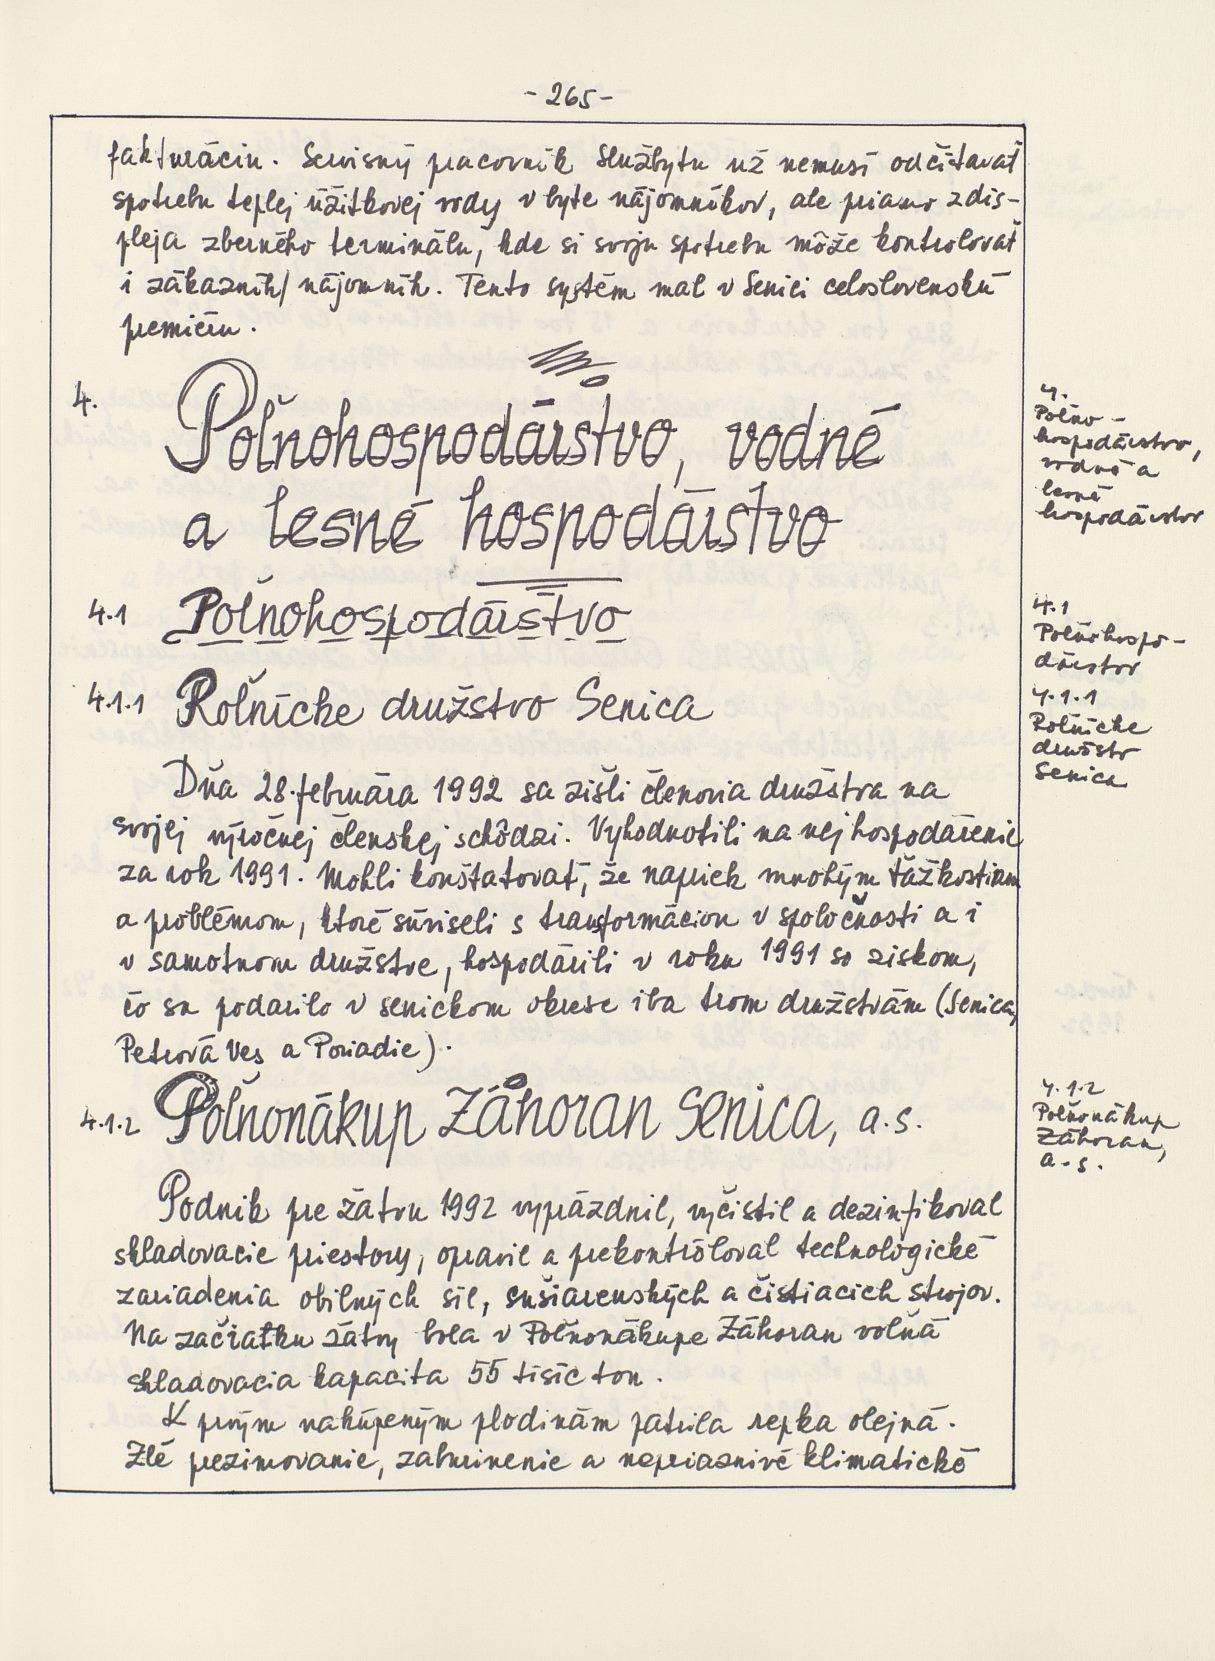 - 265 -
fakturáciu. Servisný pracovník Službytu už nemusí odčítavať
spotrebu teplej úžitkovej vody v byte nájomníkov, ale priamo z dis-
pleja zberného terminálu, kde si svoju spotrebu môže kontrolovať
i zákazník/nájomník. Tento systém mal v Senici celoslovenskú
premiéru.
4. Poľnohospodárstvo, vodné
a lesné hospodárstvo
4.
Poľno-
hospodárstvo,
vodné a
lesné
hospodárstvo
4.1 Poľnohospodárstvo
4.1
Poľnohospo-
dárstvo
4.1.1 Roľnícke družstvo Senica
4.1.1
Roľnícke
družstvo
Senica
Dňa 28. februára 1992 sa zišli členovia družstva na
svojej výročnej členskej schôdzi. Vyhodnotili na nej hospodárenie
za rok 1991. Mohli konštatovať, že napriek mnohým ťažkostiam
a problémom, ktoré súviseli s transformáciou v spoločnosti a i
v samotnom družstve, hospodárili v roku 1991 so ziskom,
čo sa podarilo v senickom okrese iba trom družstvám (Senica,
Petrova Ves a Poriadie).
4.1.2 Poľnonákup Záhoran Senica, a.s.
4.1.2
Poľnonákup
Záhoran,
a.s.
Podnik pre žatvu 1992 vyprázdnil, vyčistil a dezinfikoval
skladovacie priestory, opravil a prekontroloval technologické
zariadenia obilných síl, sušiarenských a čistiacich strojov.
Na začiatku žatvy bola v Poľnonákupe Záhoran voľná
skladovacia kapacita 55 tisíc ton.
K prvým nakúpeným plodinám patrila repka olejná.
Zlé prezimovanie, zaburinenie a nepriaznivé klimatické